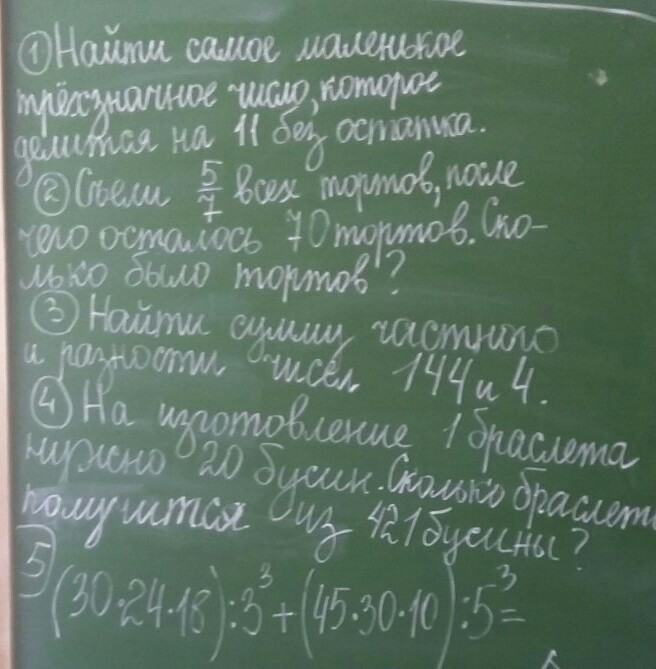 ① Найти самое маленькое
трёхзначное число, которое
делится на 11 без остатка.
② Съели 5/7 всех тортов, после
чего осталось 70 тортов. Ско-
лько было тортов?
③ Найти сумму частного
и разности чисел 144 и 4.
④ На изготовление 1 браслета
нужно 20 бусин. Сколько браслето
получится из 421 бусины?
5 (30·24·18):3³+(45·30·10):5³=